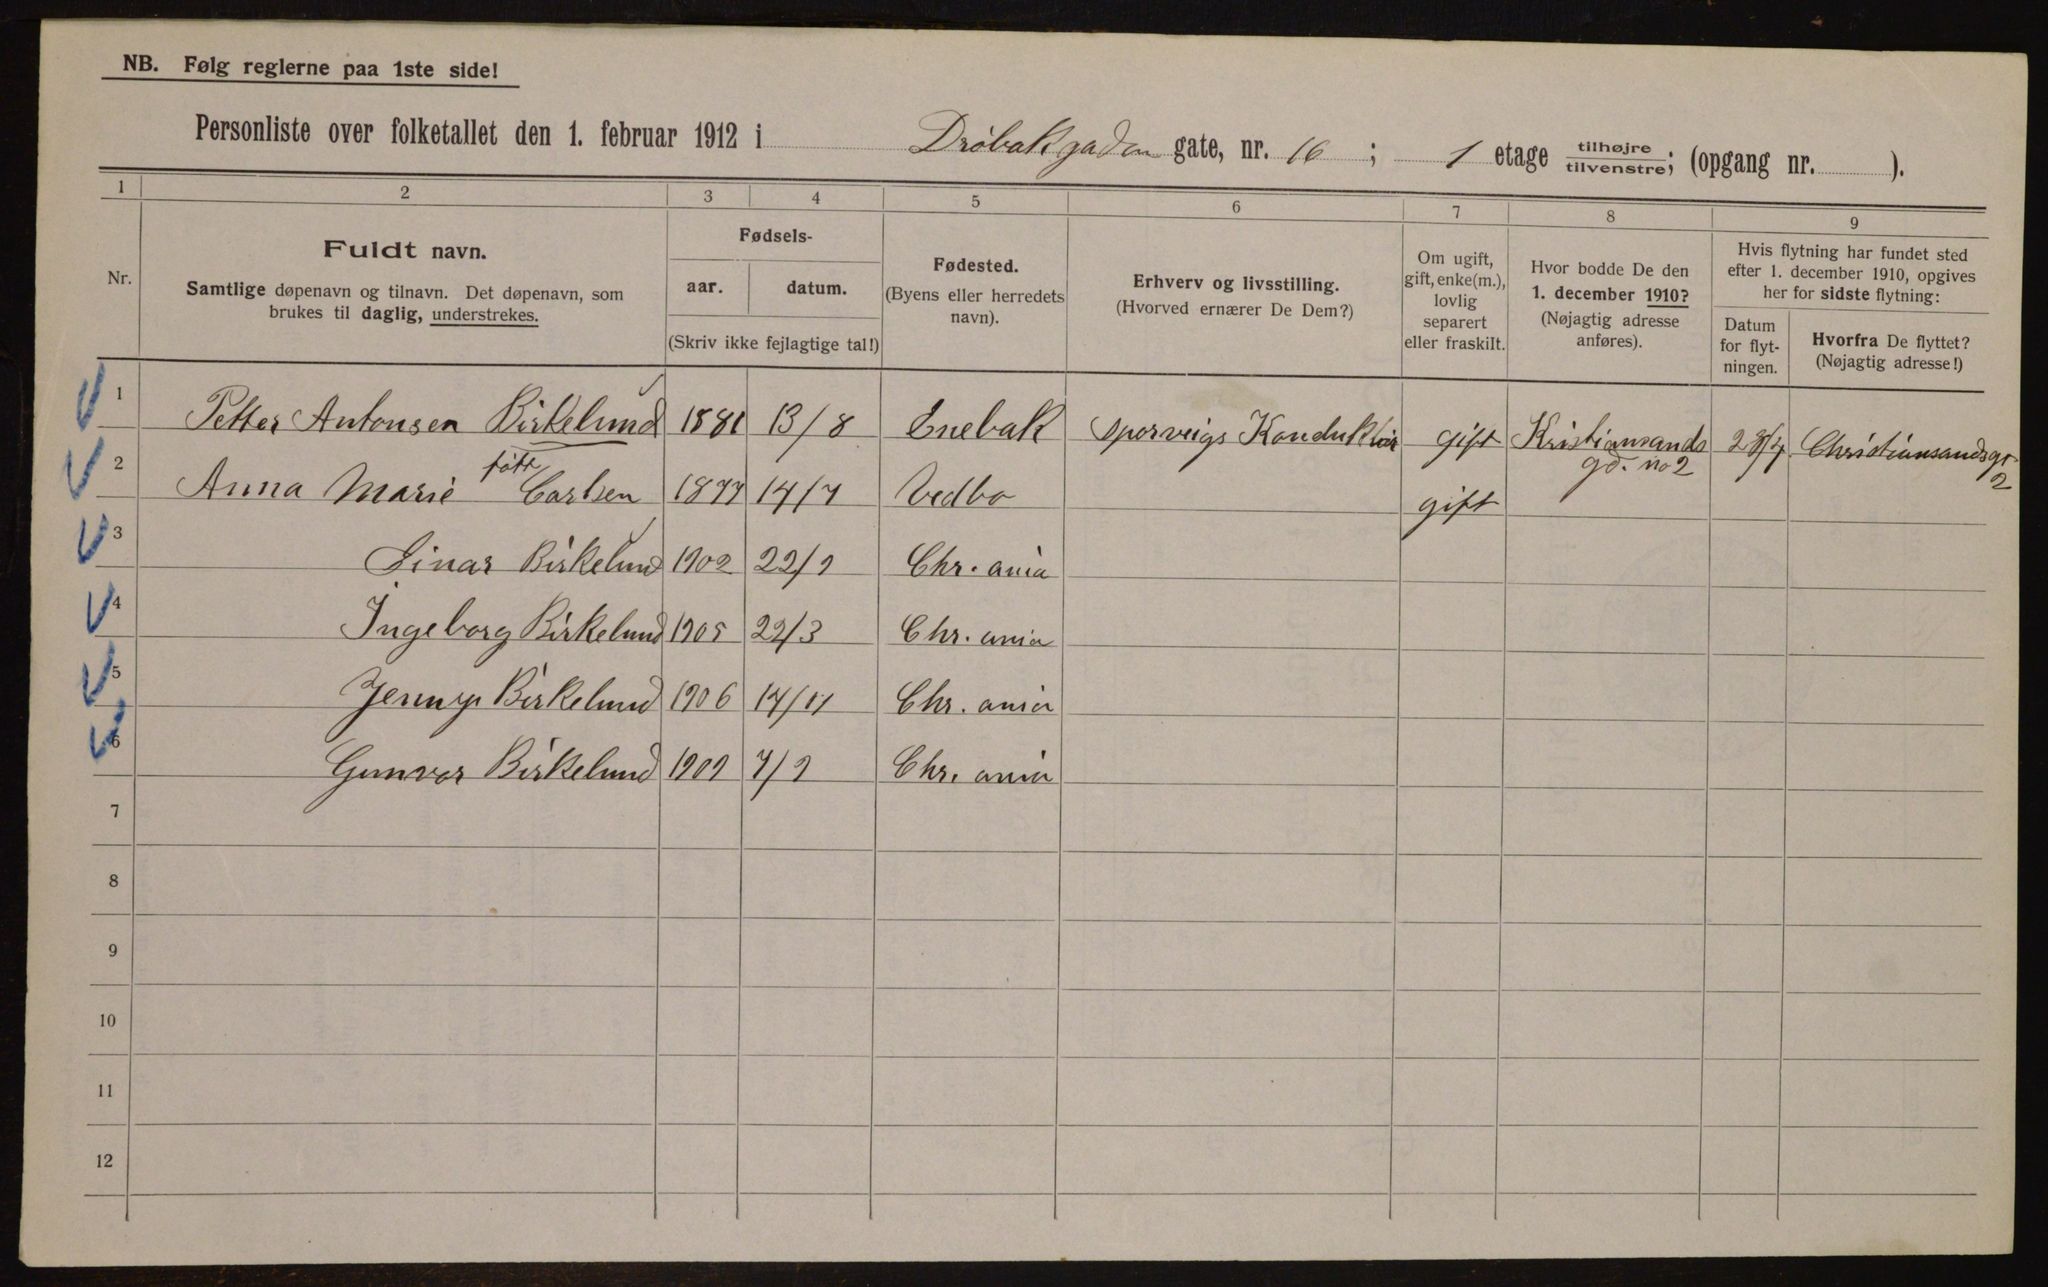 NB. Følg reglerne paa 1ste side!
Personliste over folketallet den 1. februar 1912 i Drøbakgaden gate, nr. 16 ; 1 etage tilhøjre/tilvenstre; (opgang nr. ).
1 2 3 4 5 6 7 8 9
Nr.
Fuldt navn.
Samtlige døpenavn og tilnavn. Det døpenavn, som
brukes til daglig, understrekes.
Fødsels-
aar. datum.
(Skriv ikke fejlagtige tal!)
Fødested.
(Byens eller herredets
navn).
Erhverv og livsstilling.
(Hvorved ernærer De Dem?)
Om ugift,
gift, enke(m.),
lovlig
separert
eller fraskilt.
Hvor bodde De den
1. december 1910?
(Nøjagtig adresse
anføres).
Hvis flytning har fundet sted
efter 1. december 1910, opgives
her for sidste flytning:
Datum
for flyt-
ningen.
Hvorfra De flyttet?
(Nøjagtig adresse!)
1 Petter Antonsen Birkelund 1881 13/8 Enebak Sporveigs Konduktør gift Kristiansands gd. no 2 Christiansandsgt 2
2 Anna Marie født Carlsen 1877 14/7 Vedbo gift
3 Einar Birkelund 1902 22/9 Chr.ania
4 Ingeborg Birkelund 1905 22/3 Chr.ania
5 Jenny Birkelund 1906 14/11 Chr.ania
6 Gunvor Birkelund 1909 7/9 Chr.ania
7
8
9
10
11
12